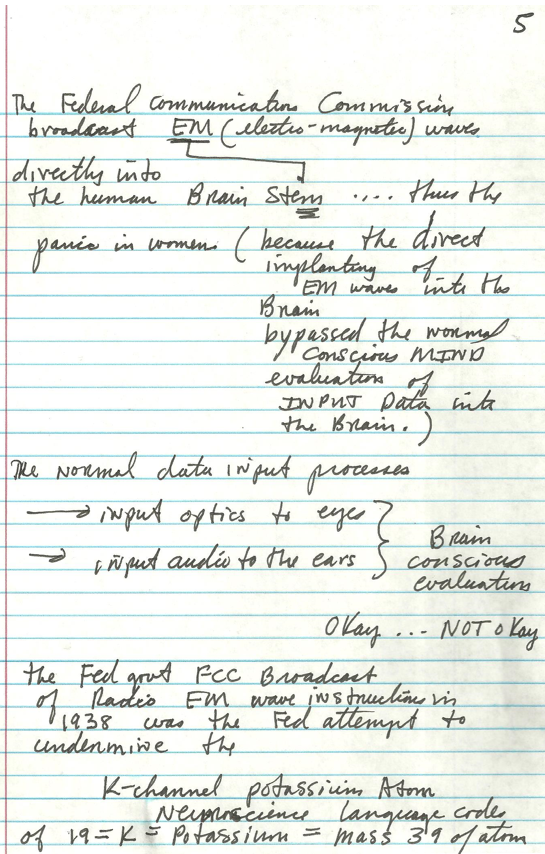 5
The Federal communication Commission
broadcast EM (electro-magnetic) waves
directly into
the human Brain Stem .... thus the
panic in women (because the direct
implanting of
EM waves into the
Brain
bypassed the normal
conscious MIND
evaluation of
INPUT Data into
the Brain.)
The normal data input processes
→ input optics to eyes
→ input audio to the ears } Brain
conscious
evaluation
Okay ... NOT okay
the Fed govt FCC Broadcast
of Radio EM wave instructions in
1938 was the Fed attempt to
undermine the
K-channel potassium Atom
Neuroscience language codes
of 19 = K = Potassium = mass 39 of atom